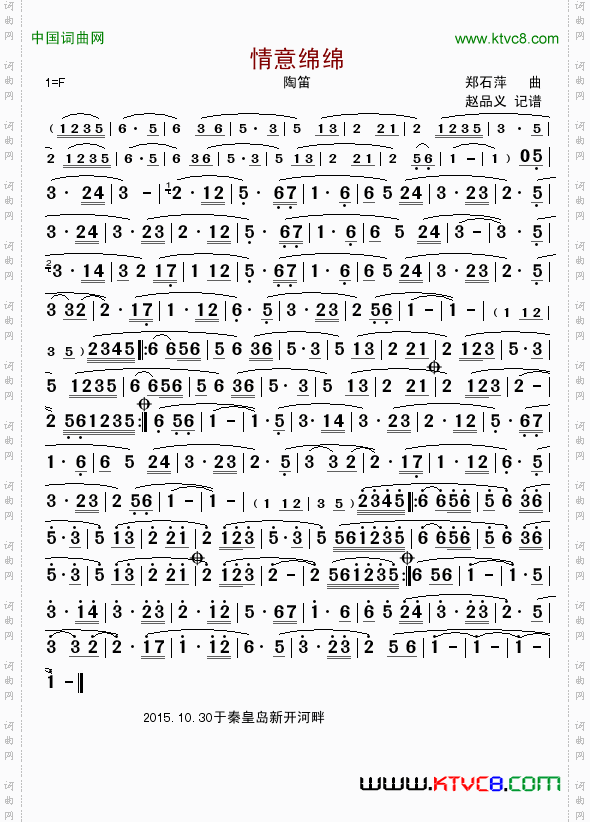 中国词曲网 www.ktvc8.com
情意绵绵
1=F 陶笛 郑石萍 曲
赵品义 记谱
( 1235 | 6· 5 | 6 36 | 5·3 | 5 13 | 2 21 | 2 1235 | 3 · 5 |
2 1235 | 6·5 | 6 36 | 5·3 | 5 13 | 2 21 | 2 56 | 1 - | 1 ) 05 |
3· 24 | 3 - | 2·12 | 5· 67 | 1· 6 | 6 5 24 | 3·23 | 2·5 |
3·24 | 3·23 | 2·12 | 5·67 | 1·6 | 6 5 24 | 3 - | 3·5 |
3·14 | 3 2 17 | 1 12 | 5·67 | 1·6 | 6 5 24 | 3·23 | 2·5 |
3 32 | 2·17 | 1·12 | 6·5 | 3·23 | 2 56 | 1 - | 1 - | ( 1 12 |
3 5 ) 2345 |: 6 656 | 5 6 36 | 5·3 | 5 13 | 2 21 | 2 123 | 5·3 |
5 1235 | 6 656 | 5 6 36 | 5·3 | 5 13 | 2 21 | 2 123 | 2 - |
2 561235 :| 6 56 | 1 - | 1·5 | 3·14 | 3·23 | 2·12 | 5·67 |
1·6 | 6 5 24 | 3·23 | 2·5 | 3 32 | 2·17 | 1·12 | 6·5 |
3·23 | 2 56 | 1 - | 1 - | ( 1 12 | 3 5 ) 2345 |: 6 656 | 5 6 36 |
5·3 | 5 13 | 2 21 | 2 123 | 5·3 | 5 561235 | 6 656 | 5 6 36 |
5·3 | 5 13 | 2 21 | 2 123 | 2 - | 2 561235 :| 6 56 | 1 - | 1·5 |
3·14 | 3·23 | 2·12 | 5·67 | 1·6 | 6 5 24 | 3·23 | 2·5 |
3 32 | 2·17 | 1·12 | 6·5 | 3·23 | 2 56 | 1 - | 1 - |
1 - ‖
2015.10.30于秦皇岛新开河畔
www.KTVC8.COM
词曲网